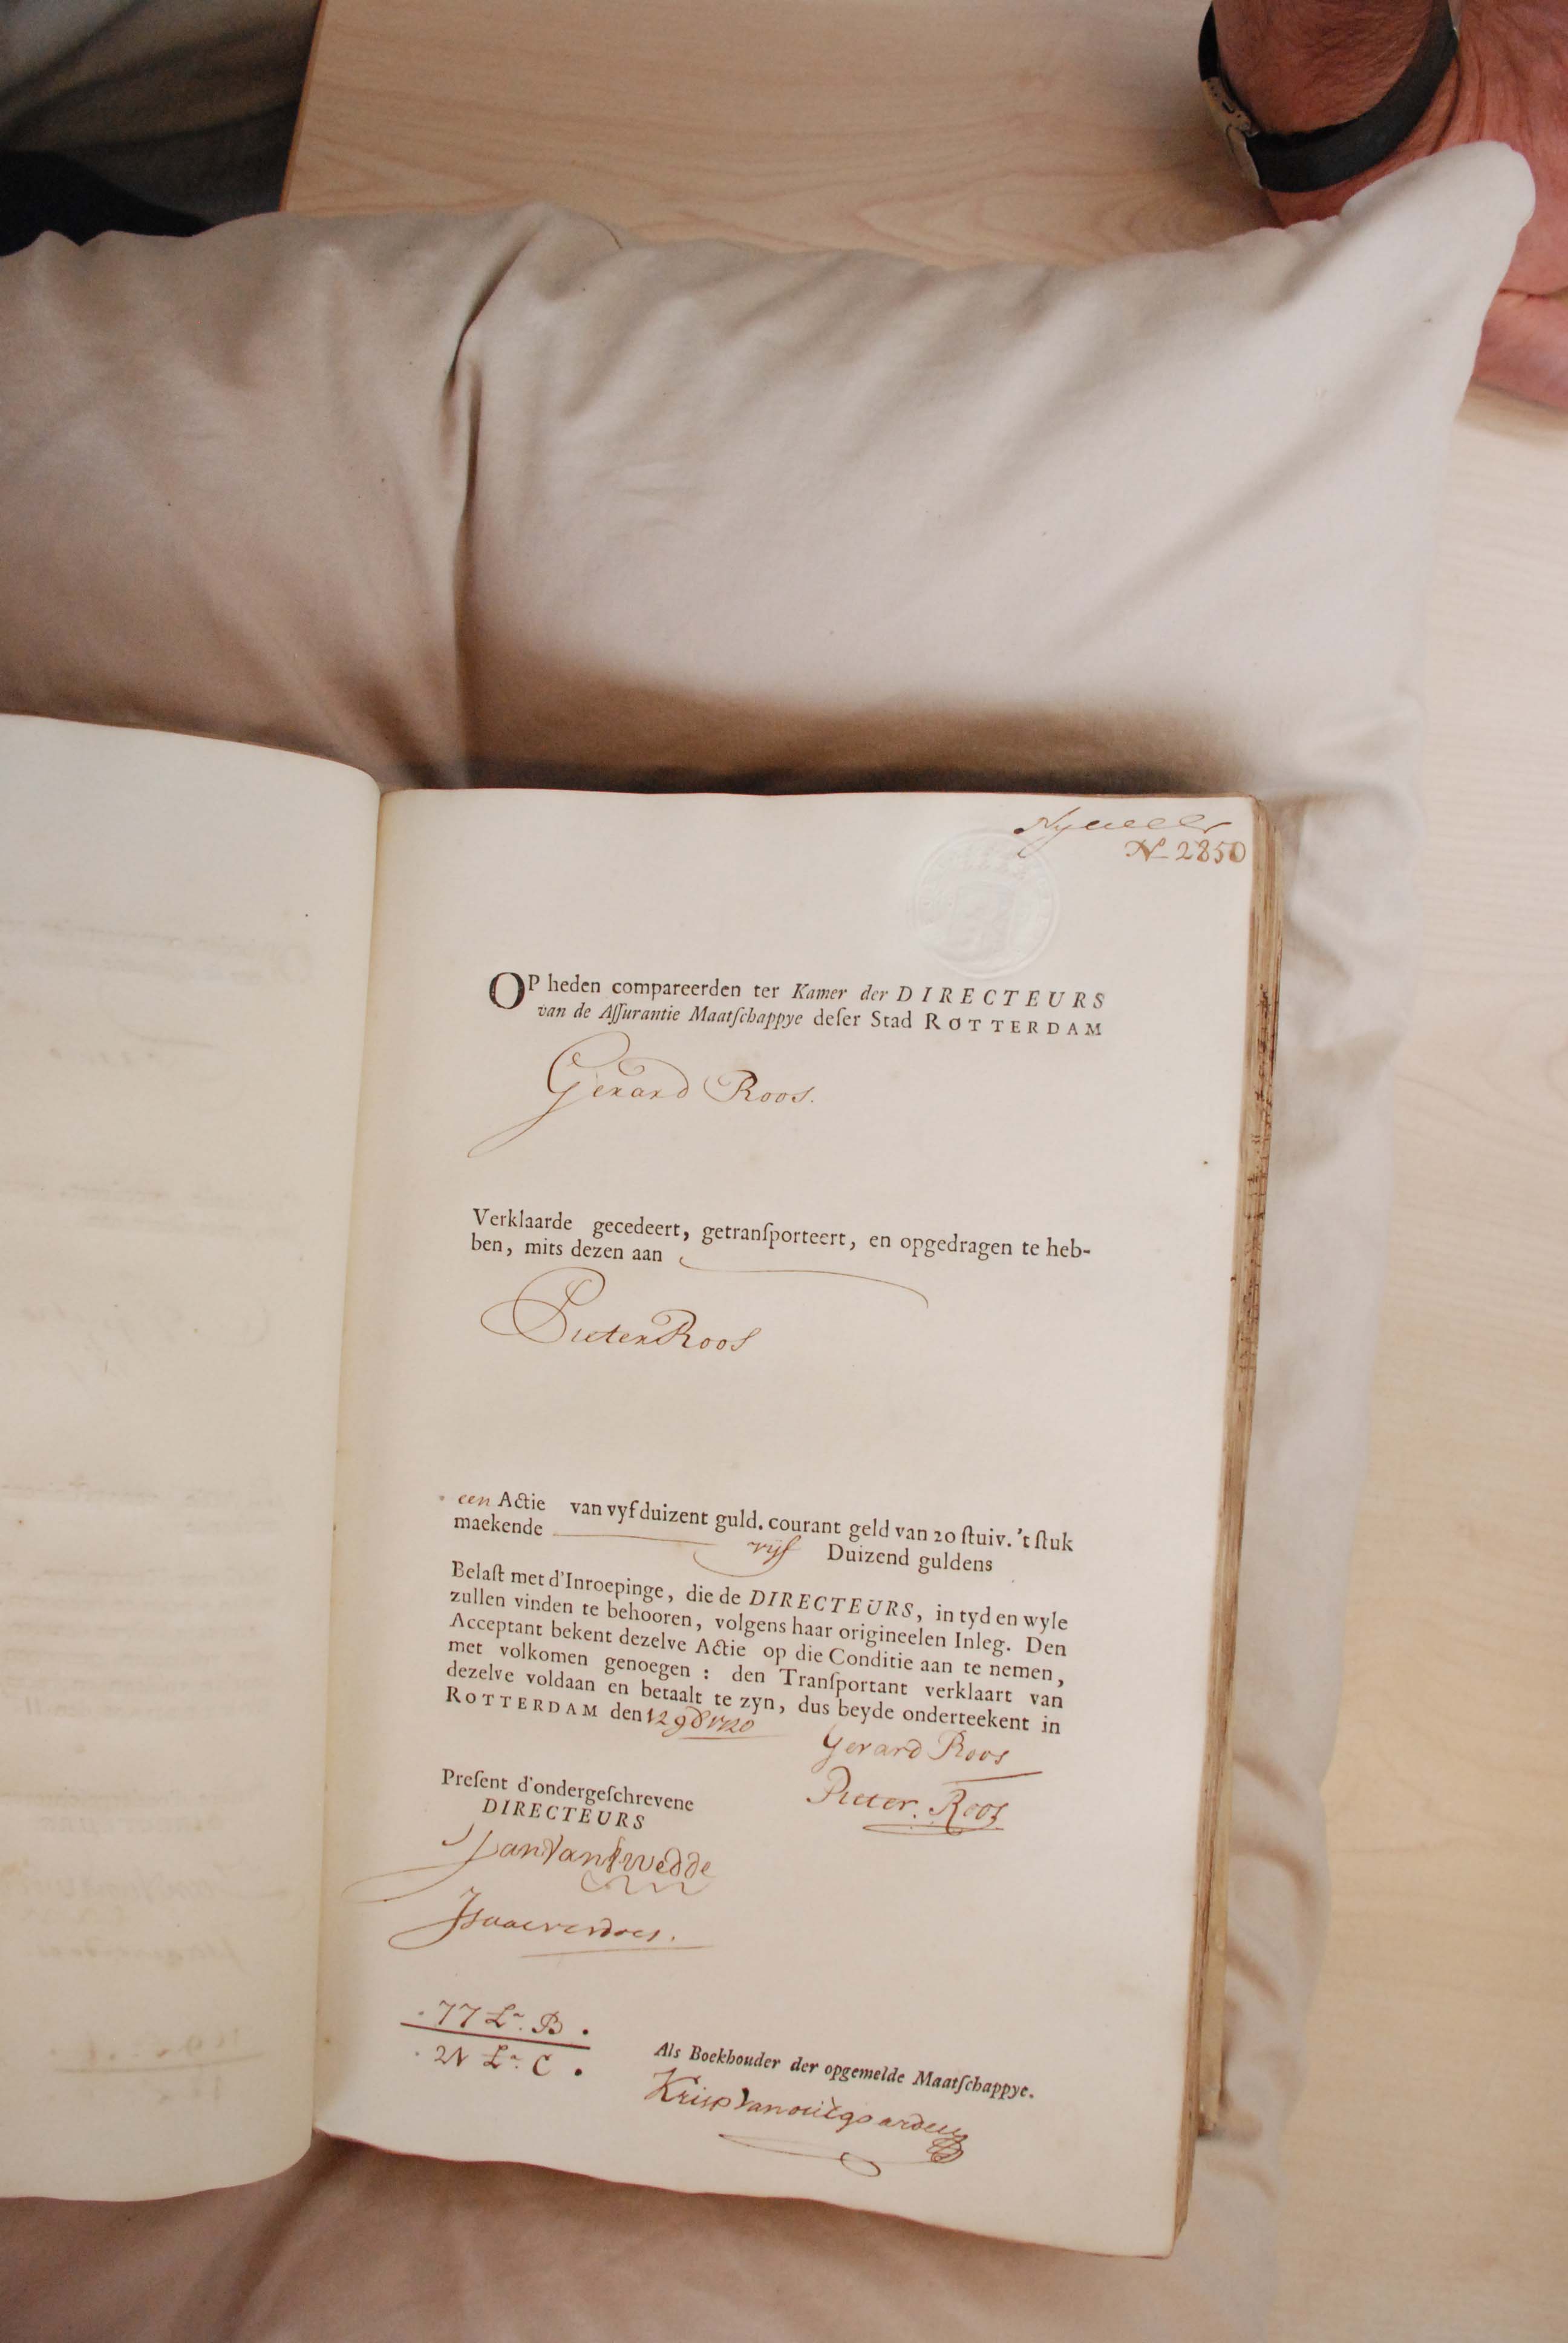 N 2850
OP heden compareerden ter Kamer der DIRECTEURS
van de Aſſurantie Maatſchappye deſer Stad ROTTERDAM
Gerard Roos.
Verklaarde gecedeert, getranſporteert, en opgedragen te heb-
ben, mits dezen aan
Pieter Roos
een Actie van vyf duizent guld. courant geld van 20 ſtuiv. 't ſtuk
maekende vyf Duizend guldens
Belaſt met d'Inroepinge, die de DIRECTEURS, in tyd en wyle
zullen vinden te behooren, volgens haar origineelen Inleg. Den
Acceptant bekent dezelve Actie op die Conditie aan te nemen,
met volkomen genoegen : den Tranſportant verklaart van
dezelve voldaan en betaalt te zyn, dus beyde onderteekent in
ROTTERDAM den 12 9b 1720
Gerard Roos
Pieter. Roos
Preſent d'ondergeſchrevene
DIRECTEURS
Jan Van Twedde
77 La. B.
21 La. C.
Als Boekhouder der opgemelde Maatſchappye.